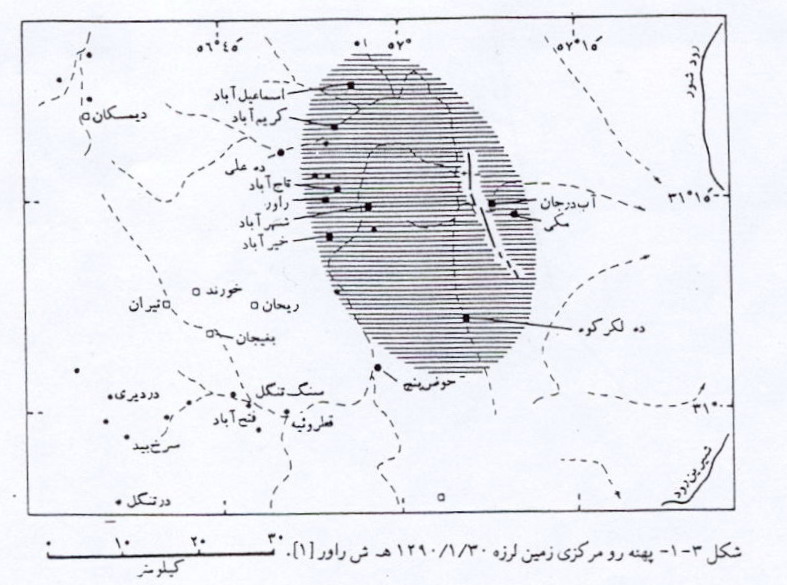 ۵۶°۴۵′
۵۷°
۵۷°۱۵′
رود شور
اسماعیل آباد
کریم آباد
دیمسکان
ده علی
تاج آباد
راور
شهر آباد
خیر آباد
آب درجان
مکی
۳۱°۱۵′
خورند
ریحان
تیران
بنیجان
ده لکرکوه
حوض پنج
سنگ تنگل
دردیری
فتح آباد
قطروئیه
سرخ بید
۳۱°
شیرین رود
درتنگل
شکل ۳-۱- پهنه رو مرکزی زمین لرزه ۱۲۹۰/۱/۳۰ هـ ش راور [۱].
۰ ۱۰ ۲۰ ۳۰
کیلومتر